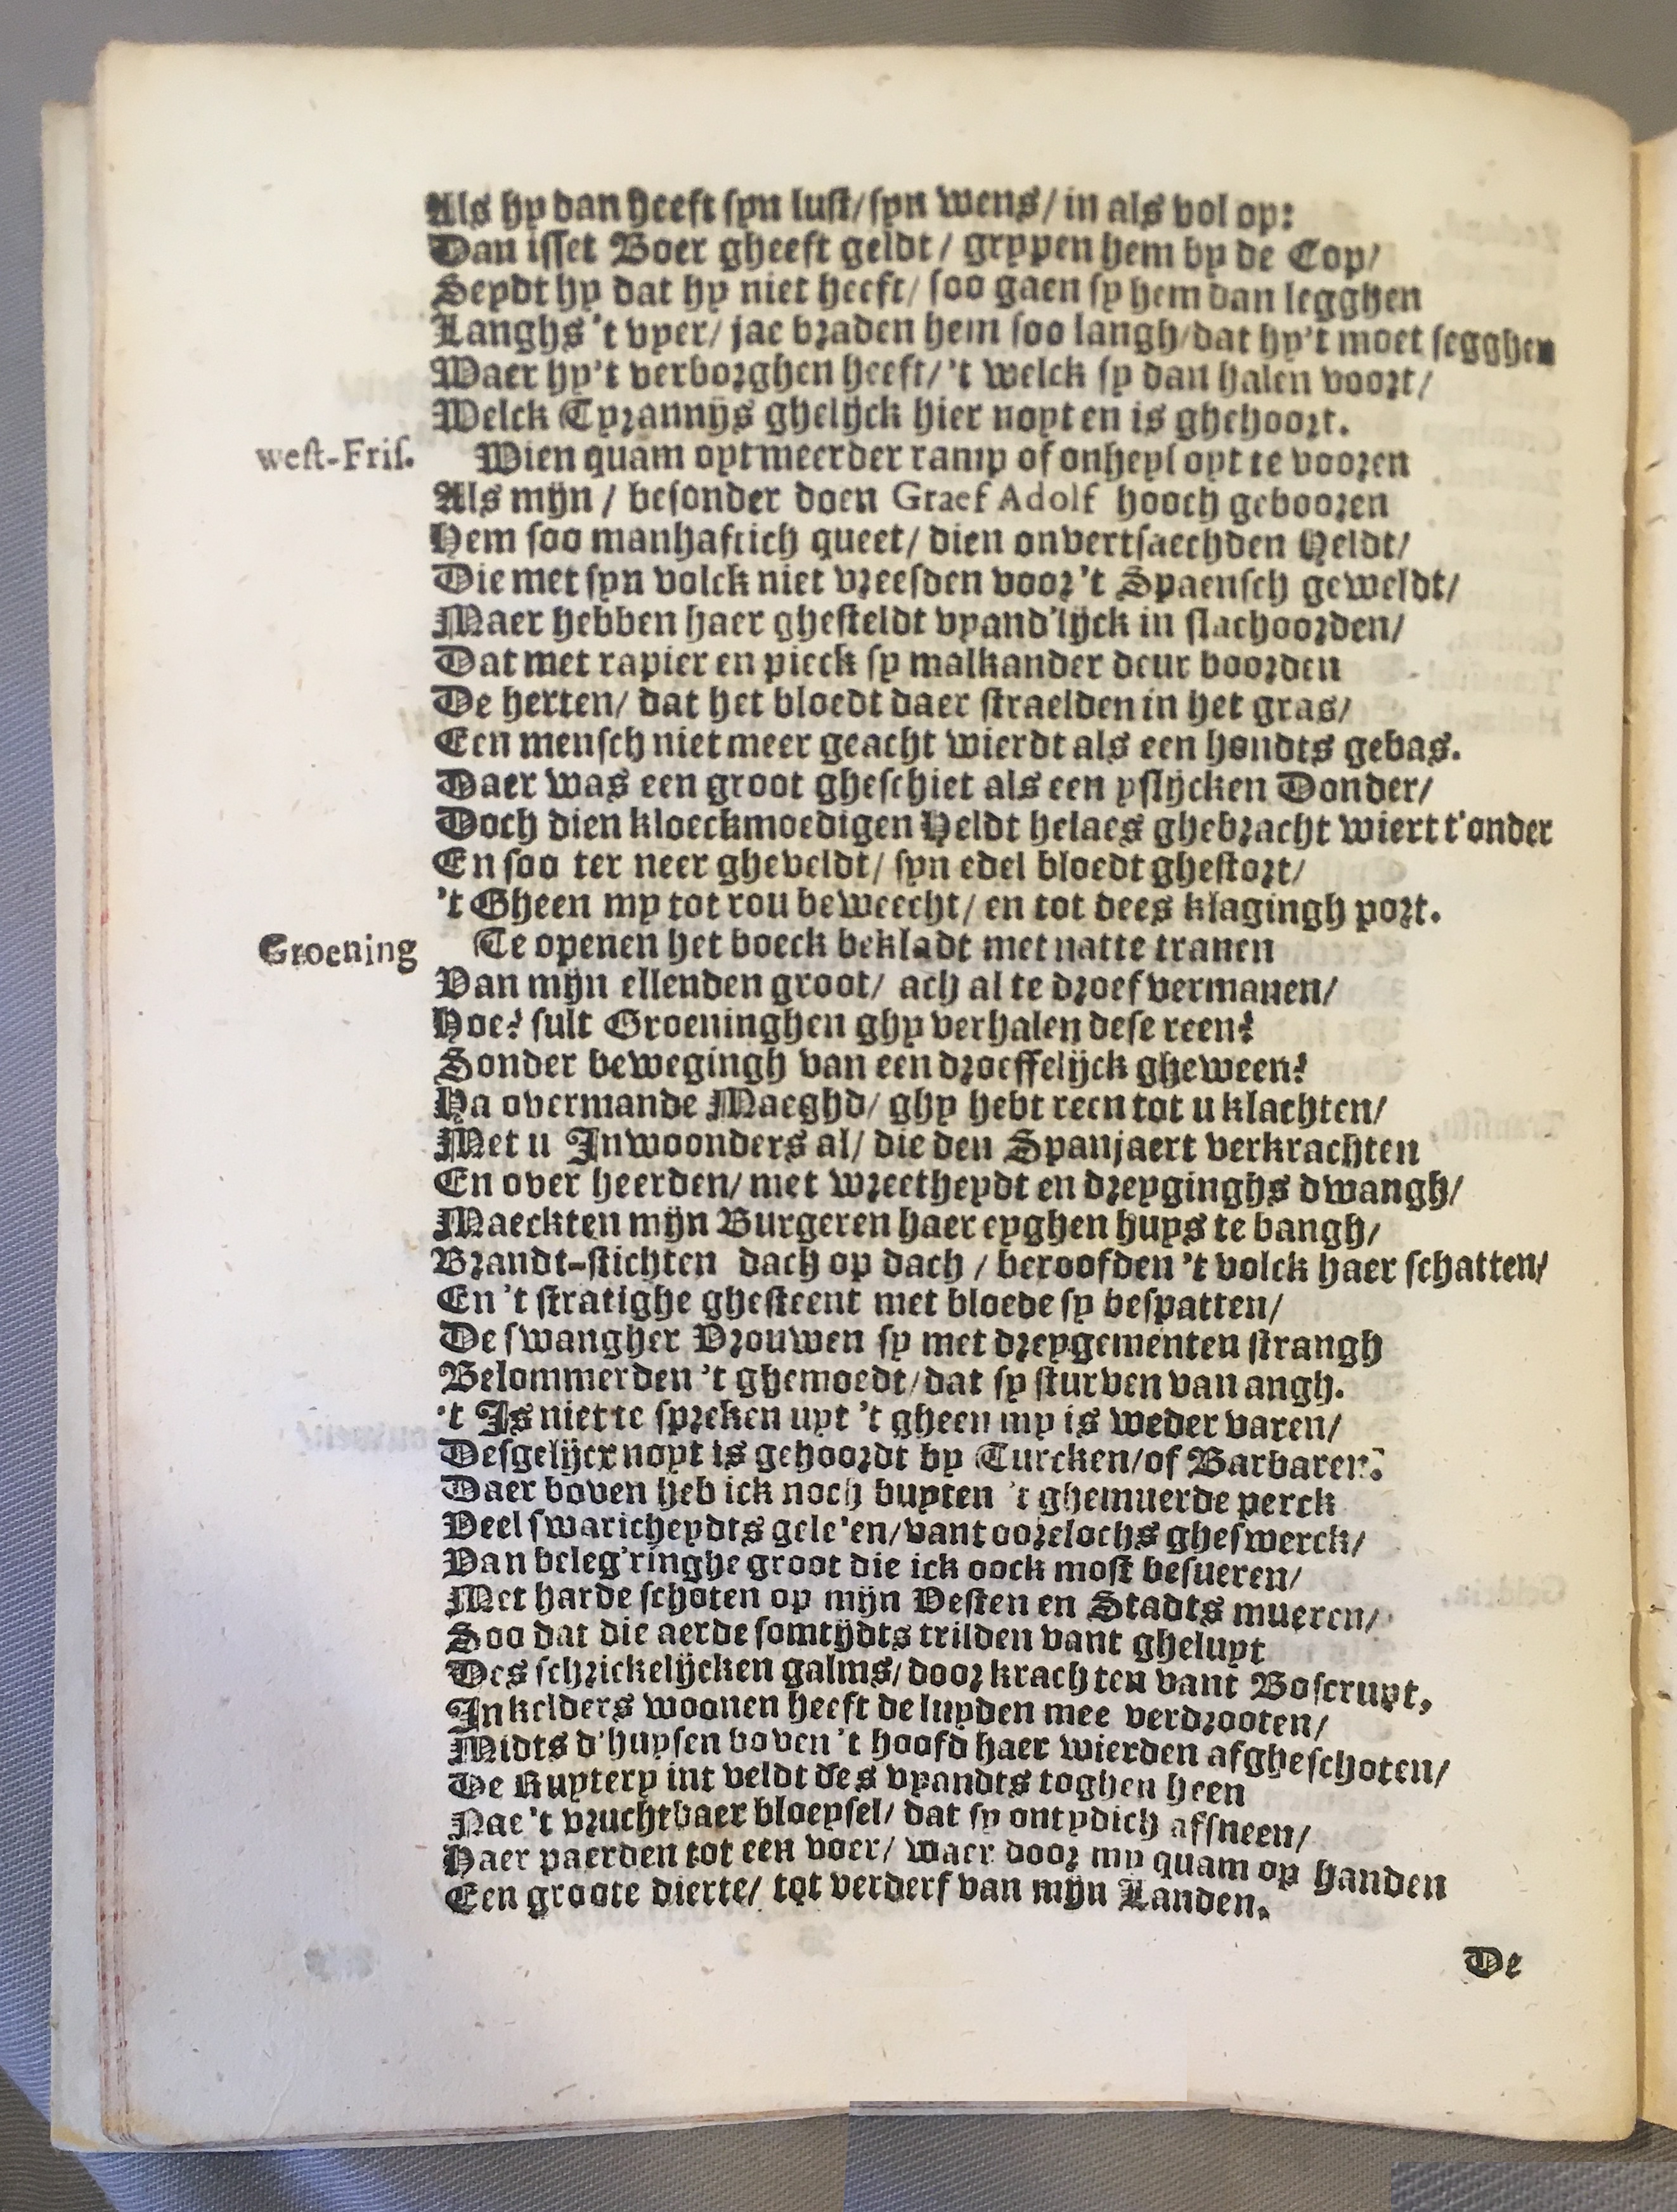 Als hy dan heeft syn lust/ syn wens/ in als vol op:
Dan isset Boer gheeft geldt/ grypen hem by de Cop/
Seydt hy dat hy niet heeft/ soo gaen sy hem dan legghen
Langhs 't vyer/ jae braden hem soo langh/ dat hy't moet segghen
Waer hy't verborghen heeft/ 't welck sy dan halen voort/
Welck Tyrannijs ghelijck hier noyt en is ghehoort.
west-Fris. Wien quam oyt meerder ramp of onheyl oyt te vooren
Als mijn / besonder doen Graef Adolf hooch gebooren
Hem soo manhaftich queet/ dien onvertsaechden Heldt/
Die met syn volck niet vreesden voor 't Spaensch geweldt/
Maer hebben haer ghesteldt vyand'lijck in slachoorden/
Dat met rapier en pieck sy malkander deur boorden
De herten/ dat het bloedt daer straelden in het gras/
Een mensch niet meer geacht wierdt als een hondts gebas.
Daer was een groot gheschiet als een yslijcken Donder/
Doch dien kloeckmoedigen Heldt helaes ghebracht wiert t'onder
En soo ter neer gheveldt/ syn edel bloedt ghestort/
't Gheen my tot rou beweecht/ en tot dees klagingh port.
Groening Te openen het boeck bekladt met natte tranen
Van mijn ellenden groot/ ach al te droef vermanen/
Hoe? sult Groeninghen ghy verhalen dese reen?
Sonder bewegingh van een droeffelijck gheween?
Ha overmande Maeghd/ ghy hebt reen tot u klachten/
Met u Inwoonders al/ die den Spanjaert verkrachten
En over heerden/ met wreetheydt en dreyginghs dwangh/
Maeckten mijn Burgeren haer eyghen huys te bangh/
Brandt-stichten dach op dach / beroofden 't volck haer schatten/
En 't stratighe ghesteent met bloede sy bespatten/
De swangher Vrouwen sy met dreygementen strangh
Belommerden 't ghemoedt/ dat sy sturven van angh.
't Is niet te spreken uyt 't gheen my is weder varen/
Desgelijcx noyt is gehoordt by Turcken/ of Barbaren:
Daer boven heb ick noch buyten 't ghemuerde perck
Veel swaricheydts gele'en/ vant oorelochs gheswerck/
Van beleg'ringhe groot die ick oock most besueren/
Met harde schoten op mijn Vesten en Stadts mueren/
Soo dat die aerde somtijdts trilden vant gheluyt
Des schrickelijcken galms/ door krachten vant Boscruyt,
In kelders woonen heeft de luyden mee verdrooten/
Midts d'huysen boven 't hoofd haer wierden afgheschoten/
De Ruytery int veldt des vyandts toghen heen
Nae 't vruchtbaer bloeysel/ dat sy ontydich afsneen/
Haer paerden tot een voer/ waer door my quam op handen
Een groote dierte/ tot verderf van mijn Landen.
De